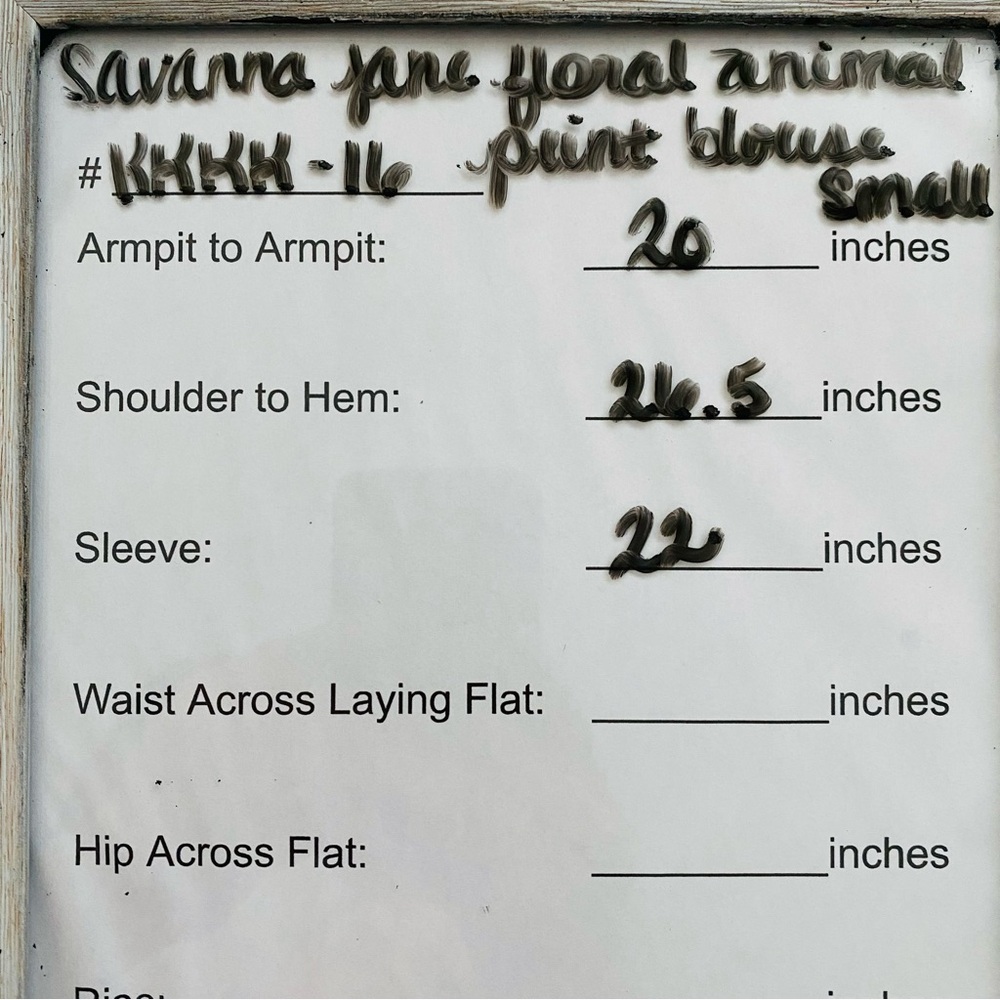 Savanna Jane floral animal
print blouse
# KKKK-16
Small
Armpit to Armpit: 20 inches
Shoulder to Hem: 26.5 inches
Sleeve: 22 inches
Waist Across Laying Flat: inches
Hip Across Flat: inches